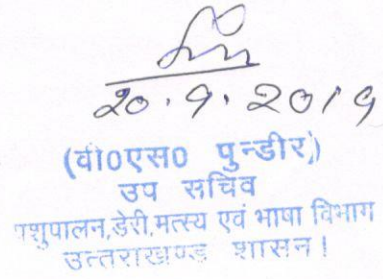 20.9.2019
(वी0एस0 पुन्डीर)
उप सचिव
पशुपालन,डेरी,मत्स्य एवं भाषा विभाग
उत्तराखण्ड शासन।